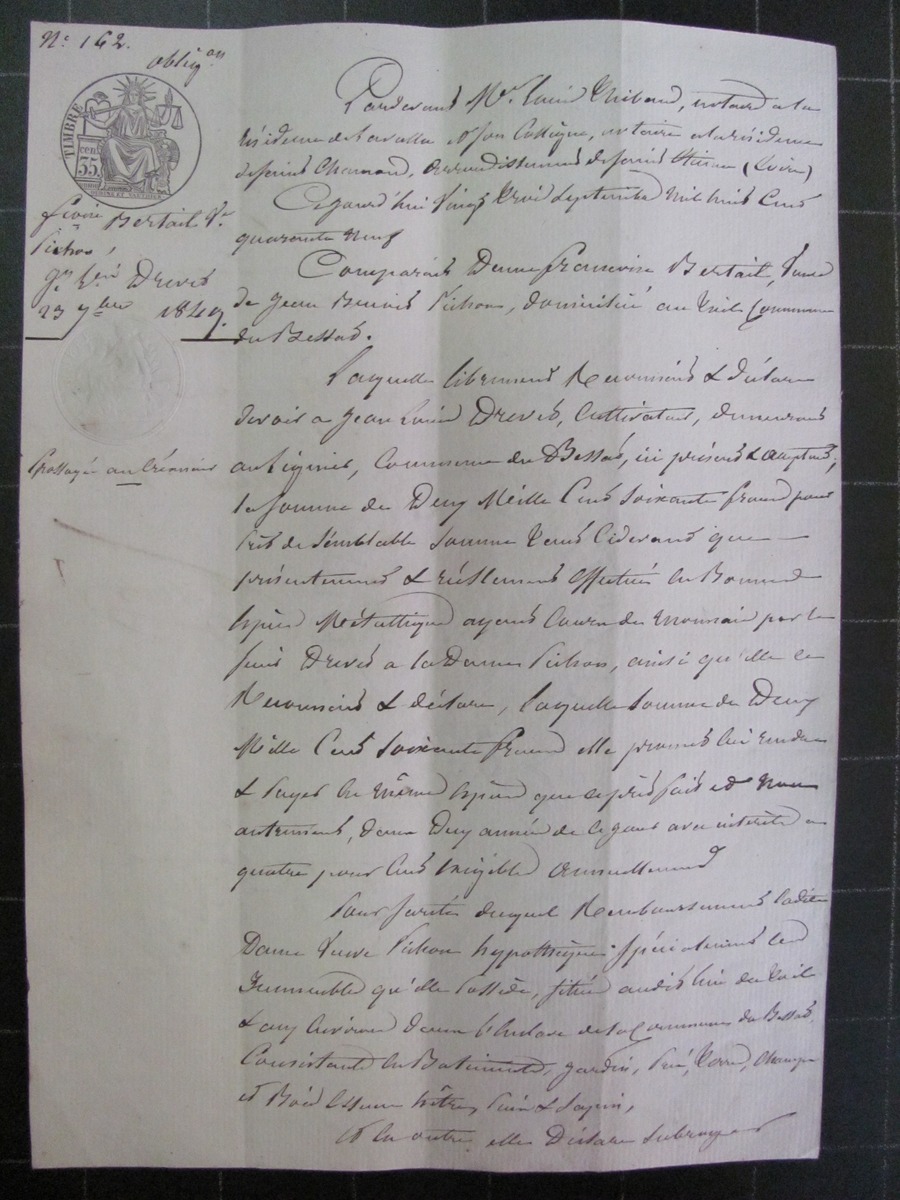 N° 162.
oblig.on
TIMBRE
35
cen
f.coise Bertail Ve
Pichon,
Jn Réné Drevet
23 7bre 1849.
Grossoyée au Créancier
Pardevant Me Thibaud, notaire a la
résidence de Lavalla et son Collègue, notaire a la résidence
de saint Chamond, arrondissement de saint Etienne (Loire)
Cejourd'hui vingt trois septembre mil huit Cent
quarante neuf
Comparait Dame francoise Bertail, veuve
de Jean Pichon, domiciliée au Toil Commune
du Bessat.
Laquelle librement Reconnait & déclare
devoir a Jean Drevet, Cultivateur, demeurant
au Commune du Bessat, ici présent & acceptant,
la somme de Deux Mille Cent soixante francs pour
prêt de semblable somme que
présentement & réellement effectué en Bonnes
espèces Métallique ayant Cours de monnaie par le
susdit Drevet a la Dame Pichon, ainsi qu'elle le
Reconnait & déclare, laquelle somme de Deux
Mille Cent soixante francs elle promet lui rendre
& payer en même espèces que le prêt fait et non
autrement, dans Deux années de ce jour avec intérêts a
quatre pour Cent exigible annuellement
Pour sureté duquel Remboursement ladite
Dame veuve Pichon hypothèque spécialement les
Immeubles qu'elle Possède, situés audit lieu du Toil
& aux environs dans l'enclave de la Commune du Bessat,
Consistant en Batiments, jardin, Pré, Terre, Champs
et Bois essence hêtre, Pin & Sapin,
Et en outre elle Déclare subroger